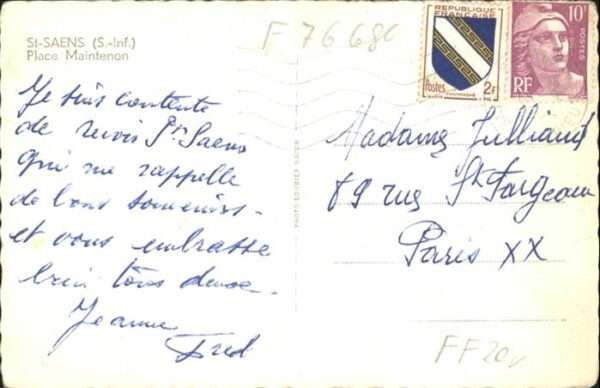 St-SAENS (S.-Inf.)
Place Maintenon
F 76680
Je suis contente
de revoir St Saens
qui me rappelle
de bons souvenirs -
et vous embrasse
bien tous deux.
Jeanne
Fred
REPUBLIQUE
FRANÇAISE
Postes 2F
CHAMPAGNE
10F
POSTES
RF
PHOTO
Madame Julliand
89 rue St Fargeau
Paris XX
FF20